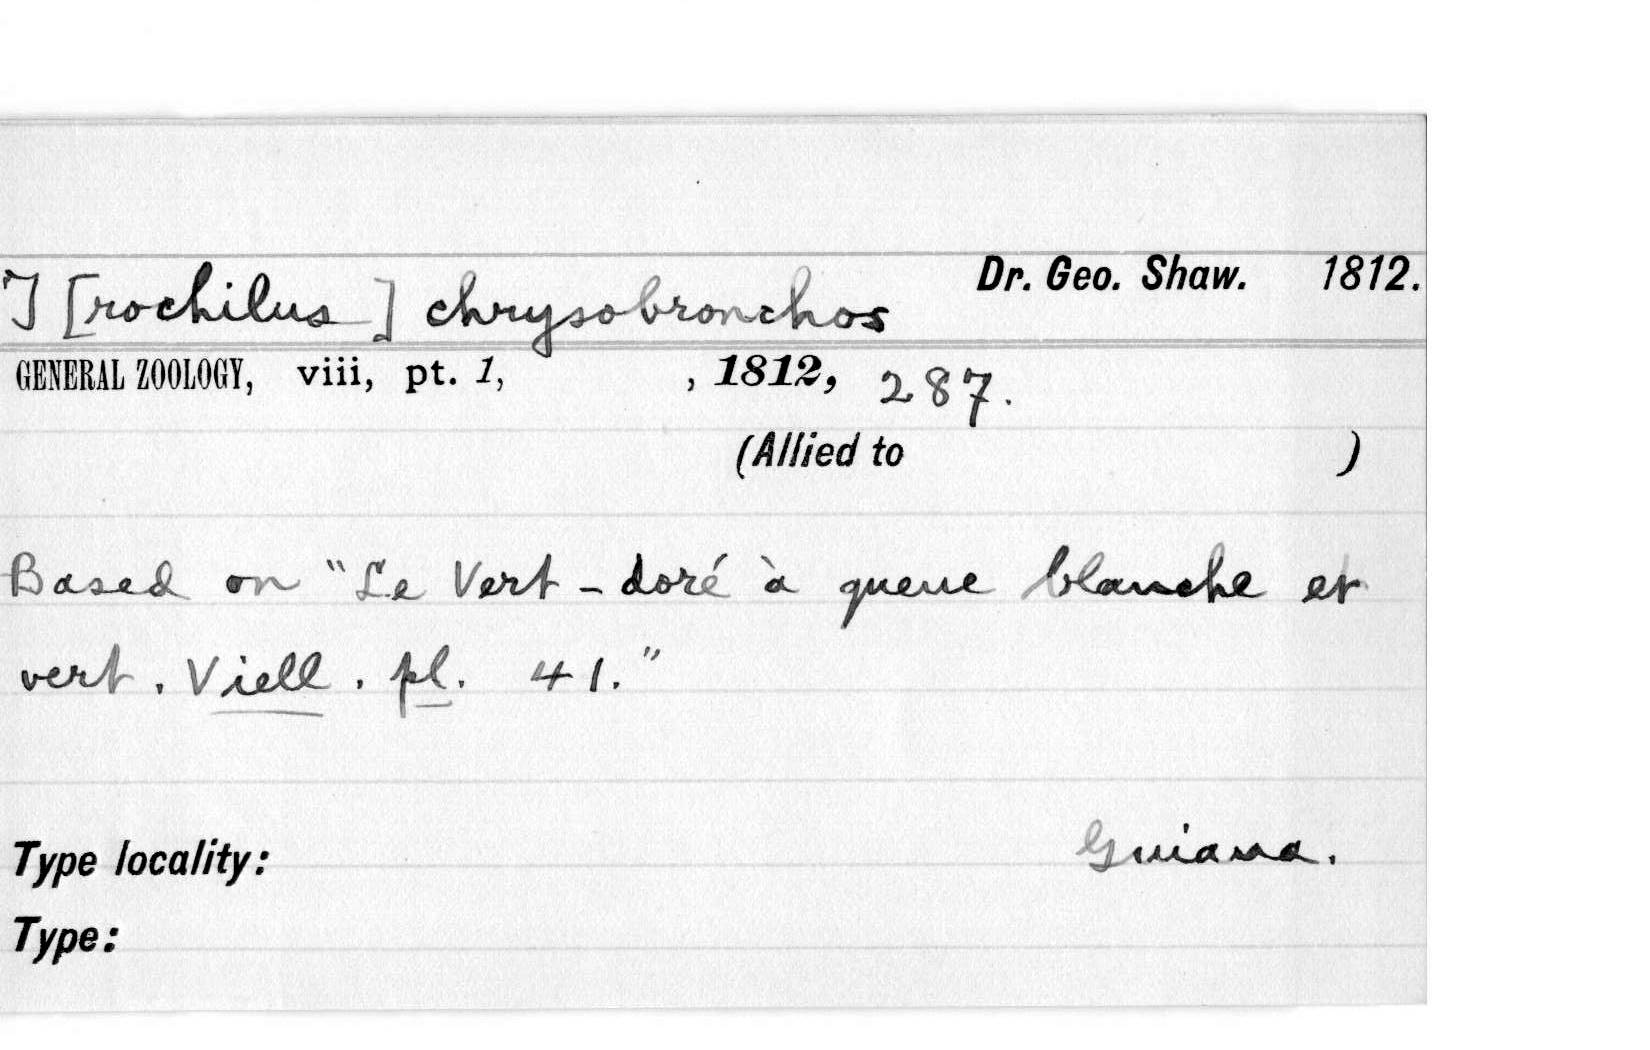 T[rochilus] chrysobronchos Dr. Geo. Shaw. 1812.
GENERAL ZOOLOGY, viii, pt. 1, , 1812, 287.
(Allied to )
Based on "Le Vert-doré à queue blanche et
vert. Viell. pl. 41."
Type locality: Guiana.
Type: